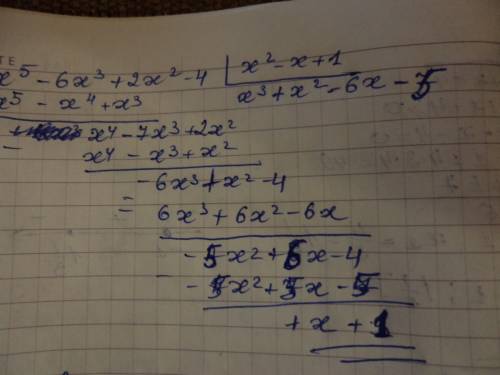 x⁵ - 6x³ + 2x² - 4 | x² - x + 1
x⁵ - x⁴ + x³ x³ + x² - 6x - 5
x⁴ - 7x³ + 2x²
x⁴ - x³ + x²
-6x³ + x² - 4
6x³ + 6x² - 6x
-5x² + 6x - 4
-5x² + 5x - 5
+ x + 1